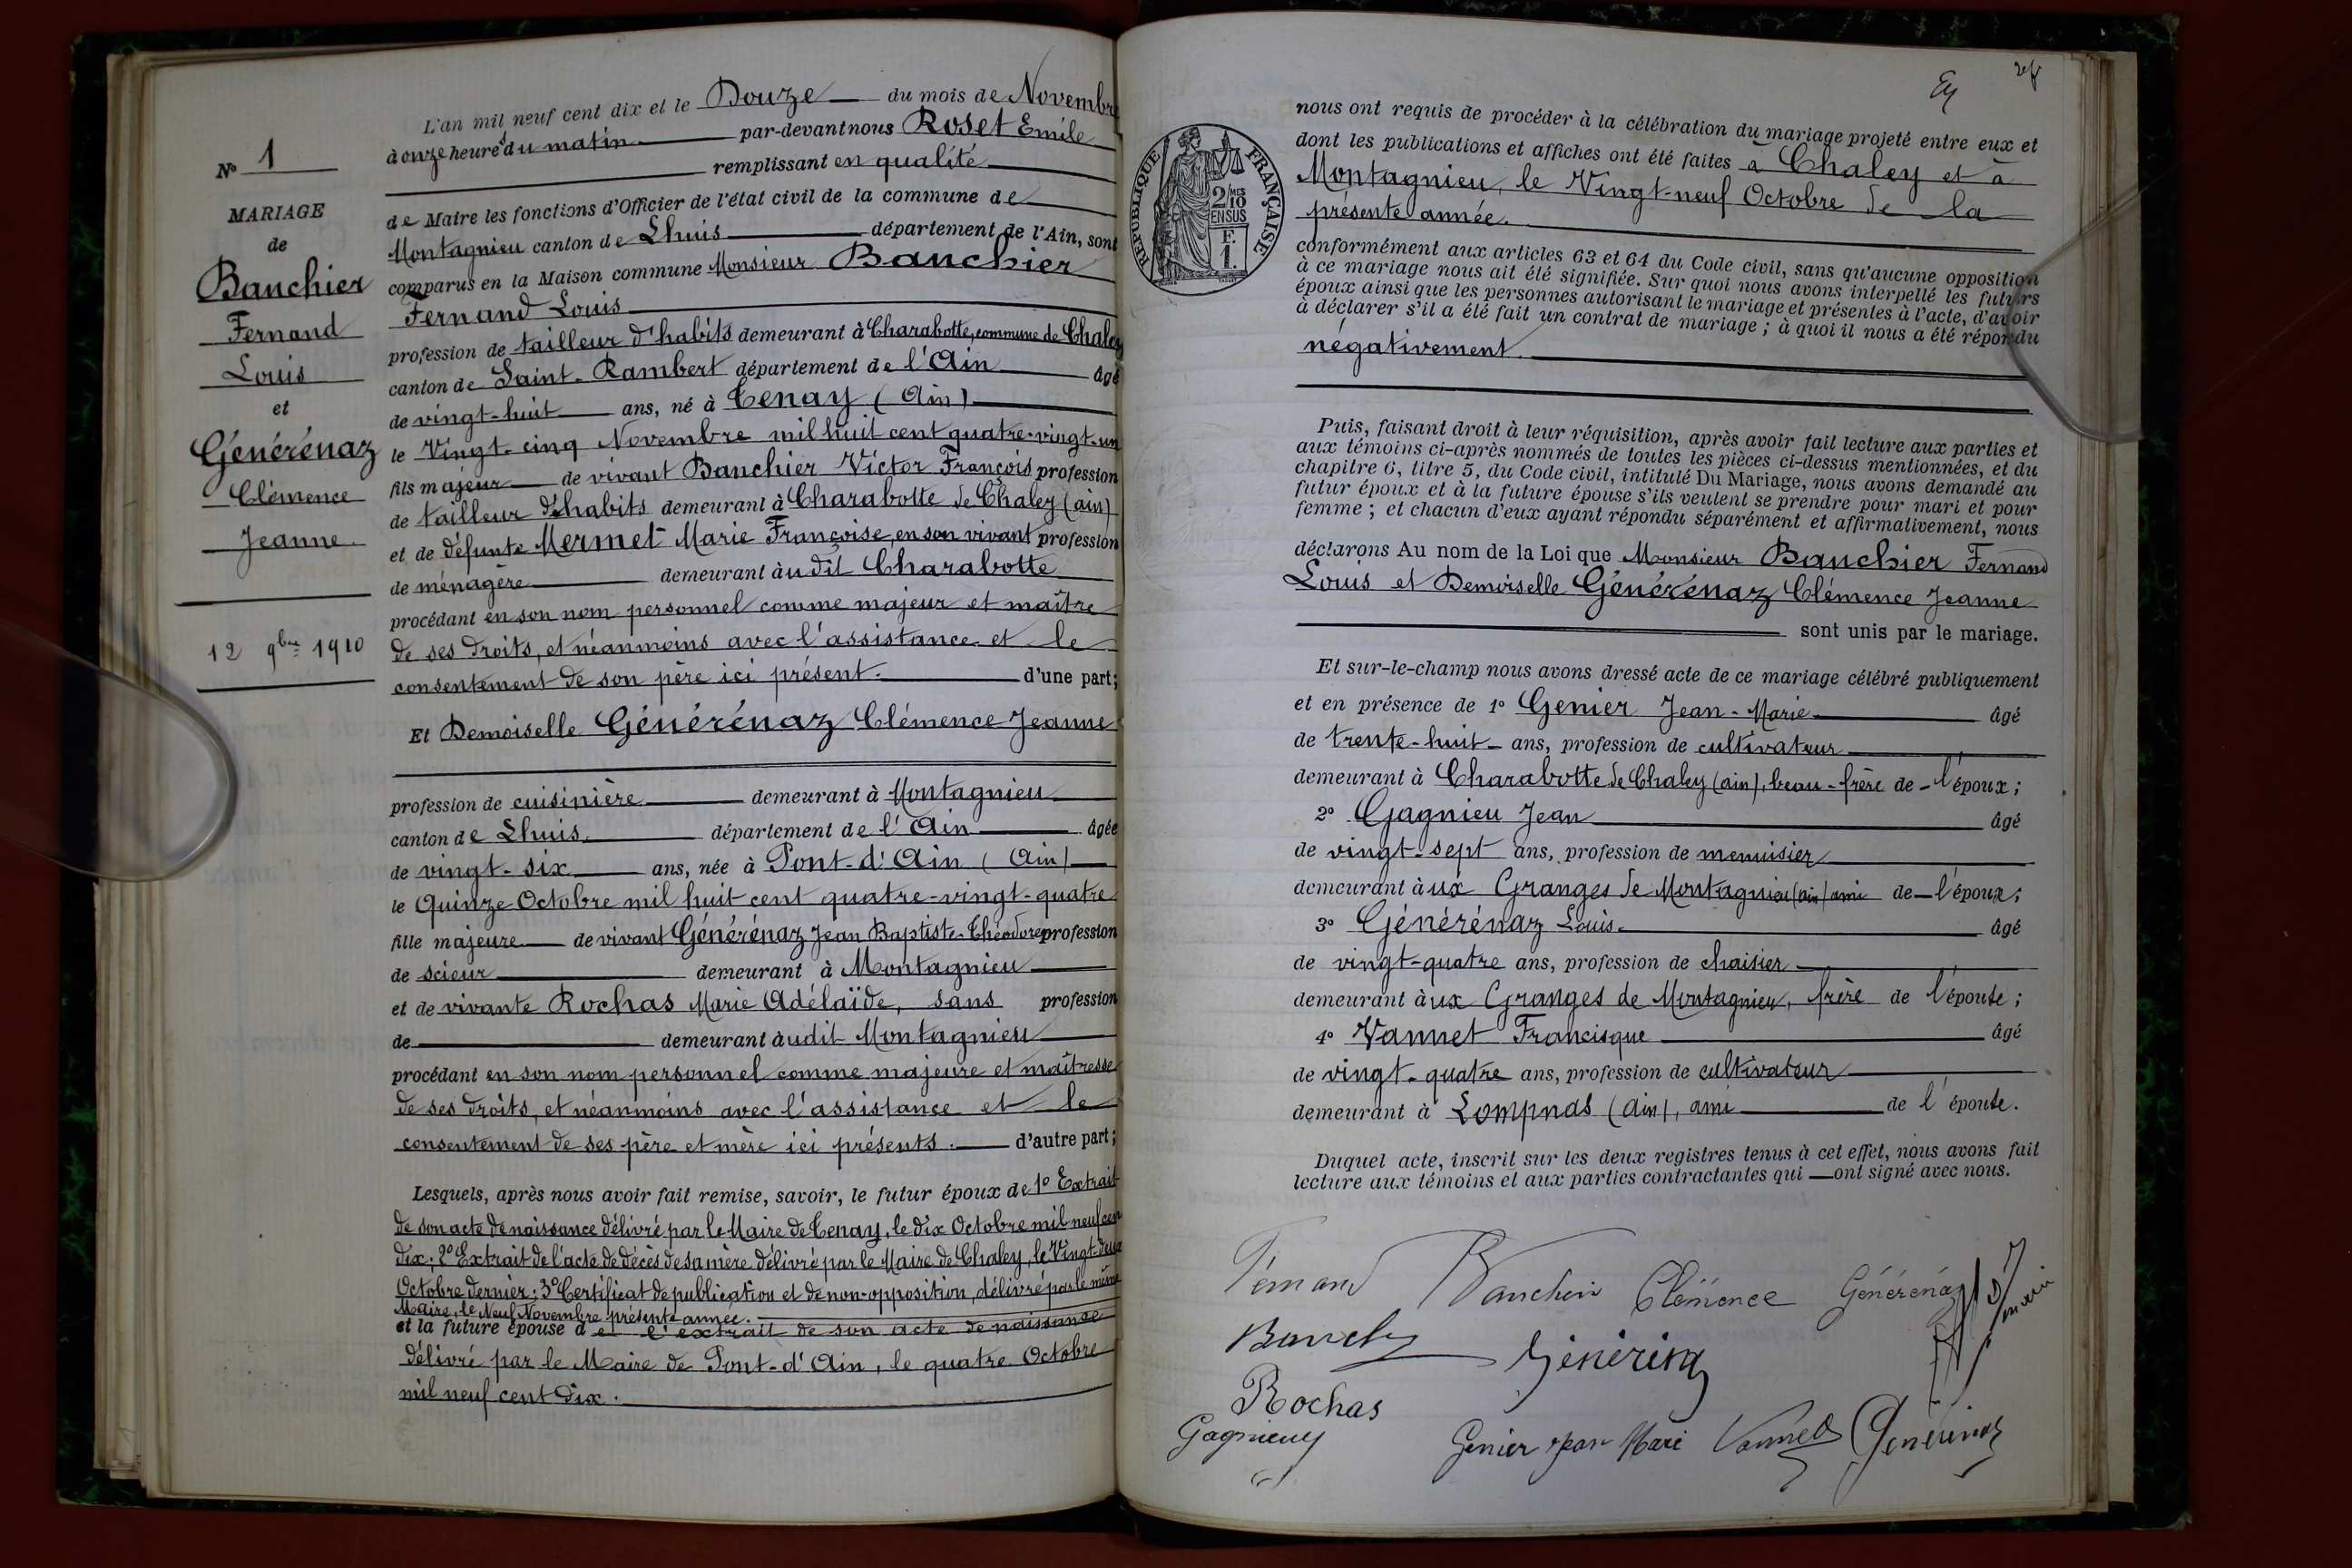 N° 1
MARIAGE
de
Banchier
Fernand
Louis
et
Générénaz
Clémence
Jeanne
12 9bre 1910
L'an mil neuf cent dix et le Douze du mois de Novembre
à onze heures du matin par-devant nous Roset Emile
remplissant en qualité
de Maire les fonctions d'Officier de l'état civil de la commune de
Montagnieu canton de Lhuis département de l'Ain, sont
comparus en la Maison commune Monsieur Banchier
Fernand Louis
profession de tailleur d'habits demeurant à Charabotte, commune de Chaley
canton de Saint-Rambert département de l'Ain âgé
de vingt-huit ans, né à Tenay (Ain)
le Vingt-cinq Novembre mil huit cent quatre-vingt-un
fils majeur de vivant Banchier Victor François profession
de tailleur d'habits demeurant à Charabotte de Chaley (ain)
et de défunte Mermet Marie Françoise, en son vivant profession
de ménagère demeurant àu dit Charabotte
procédant en son nom personnel comme majeur et maître
de ses droits, et néanmoins avec l'assistance et le
consentement de son père ici présent. d'une part;
Et Demoiselle Générénaz Clémence Jeanne
profession de cuisinière demeurant à Montagnieu
canton de Lhuis, département de l'Ain âgée
de vingt-six ans, née à Pont-d'Ain (Ain)
le Quinze Octobre mil huit cent quatre-vingt-quatre
fille majeure de vivant Générénaz Jean Baptiste-Théodore profession
de scieur demeurant à Montagnieu
et de vivante Rochas Marie Adélaïde, sans profession
de demeurant àudit Montagnieu
procédant en son nom personnel comme majeure et maîtresse
de ses droits, et néanmoins avec l'assistance et le
consentement de ses père et mère ici présents. d'autre part;
Lesquels, après nous avoir fait remise, savoir, le futur époux de 1° Extrait
de son acte de naissance délivré par le Maire de Tenay, le dix Octobre mil neuf cent
dix; 2° Extrait de l'acte de décès de sa mère délivré par le Maire de Chaley, le Vingt-deux
Octobre dernier; 3° Certificat de publication et de non-opposition, délivré par le même
Maire, le Neuf Novembre présente année.
et la future épouse de l'extrait de son acte de naissance
délivré par le Maire de Pont-d'Ain, le quatre Octobre
mil neuf cent dix.
RÉPUBLIQUE FRANÇAISE
2/10 MES
EN SUS
F.
1.
nous ont requis de procéder à la célébration du mariage projeté entre eux et
dont les publications et affiches ont été faites à Chaley et à
Montagnieu, le Vingt-neuf Octobre de la
présente année.
conformément aux articles 63 et 64 du Code civil, sans qu'aucune opposition
à ce mariage nous ait été signifiée. Sur quoi nous avons interpellé les futurs
époux ainsi que les personnes autorisant le mariage et présentes à l'acte, d'avoir
à déclarer s'il a été fait un contrat de mariage; à quoi il nous a été répondu
négativement.
Puis, faisant droit à leur réquisition, après avoir fait lecture aux parties et
aux témoins ci-après nommés de toutes les pièces ci-dessus mentionnées, et du
chapitre 6, titre 5, du Code civil, intitulé Du Mariage, nous avons demandé au
futur époux et à la future épouse s'ils veulent se prendre pour mari et pour
femme; et chacun d'eux ayant répondu séparément et affirmativement, nous
déclarons Au nom de la Loi que Monsieur Banchier Fernand
Louis et Demoiselle Générénaz Clémence Jeanne
sont unis par le mariage.
Et sur-le-champ nous avons dressé acte de ce mariage célébré publiquement
et en présence de 1° Genier Jean-Marie âgé
de trente-huit ans, profession de cultivateur
demeurant à Charabotte de Chaley (ain), beau-frère de l'époux;
2° Gagnieu Jean âgé
de vingt-sept ans, profession de menuisier
demeurant àux Granges de Montagnieu (ain) ami de l'époux;
3° Générénaz Louis âgé
de vingt-quatre ans, profession de chaisier
demeurant àux Granges de Montagnieu, frère de l'épouse;
4° Vannet Francisque âgé
de vingt-quatre ans, profession de cultivateur
demeurant à Lompnas (ain), ami de l'épouse.
Duquel acte, inscrit sur les deux registres tenus à cet effet, nous avons fait
lecture aux témoins et aux parties contractantes qui ont signé avec nous.
Fernand Banchier Clémence Générénaz
Rochas
Gagnieu